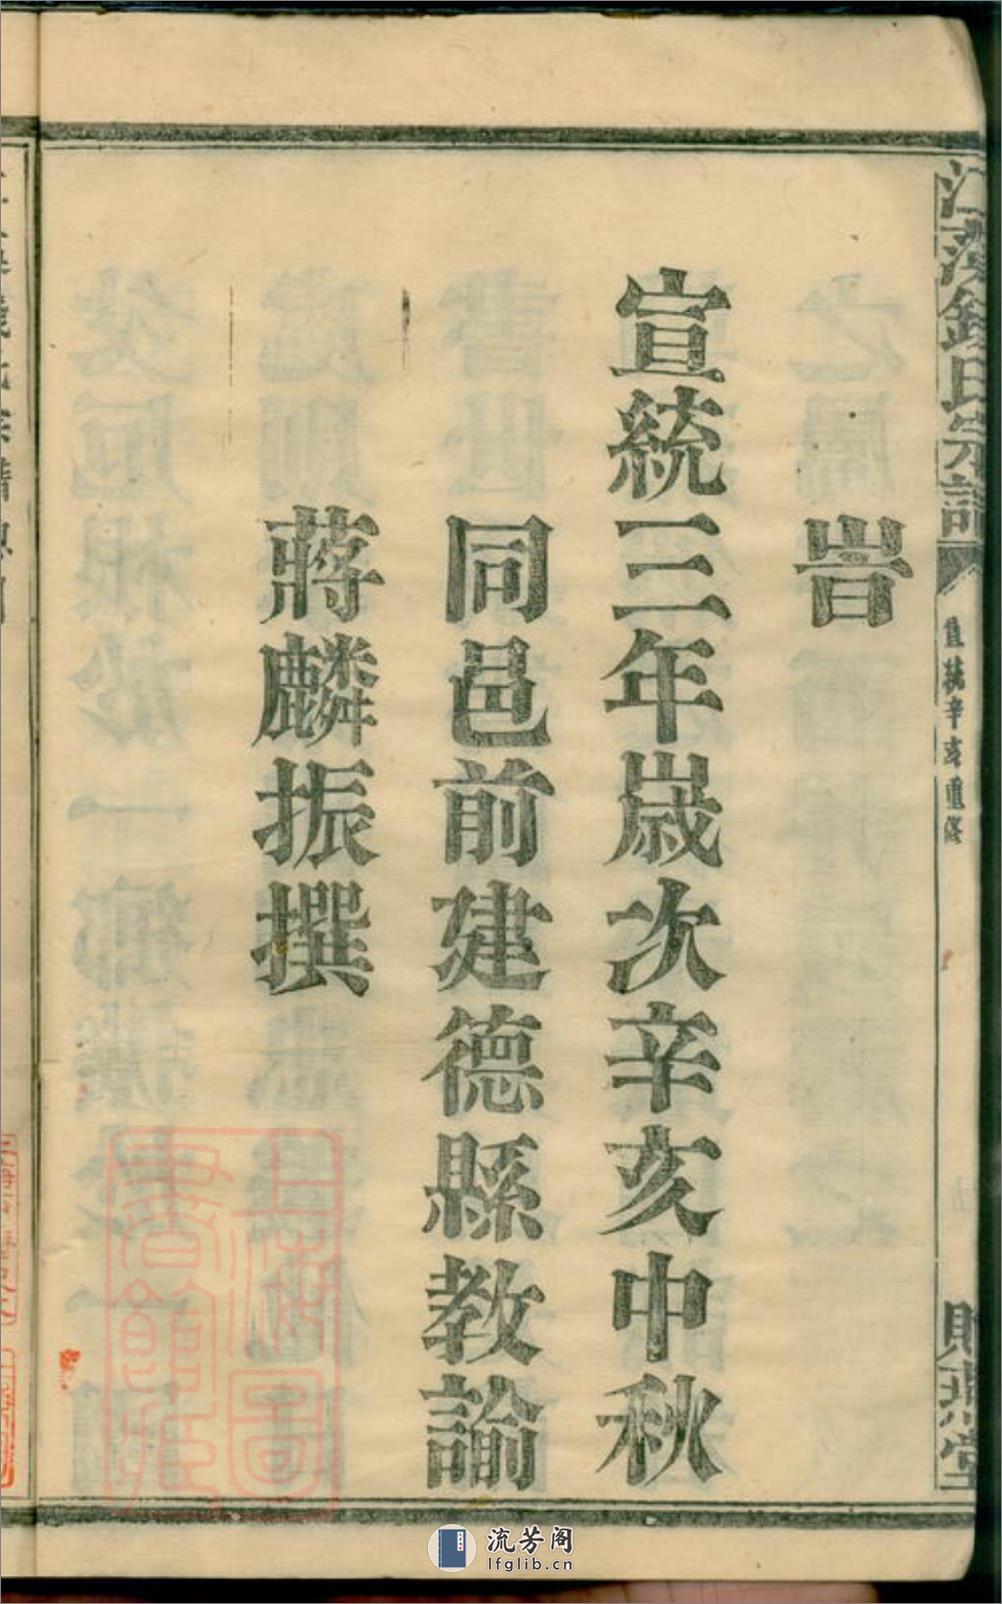 江溪錢氏宗譜
宣統辛亥重修
貽燕堂
旹
宣統三年歲次辛亥中秋
同邑前建德縣教諭
蔣麟振撰
上海圖書館藏
流芳阁
lfglib.cn